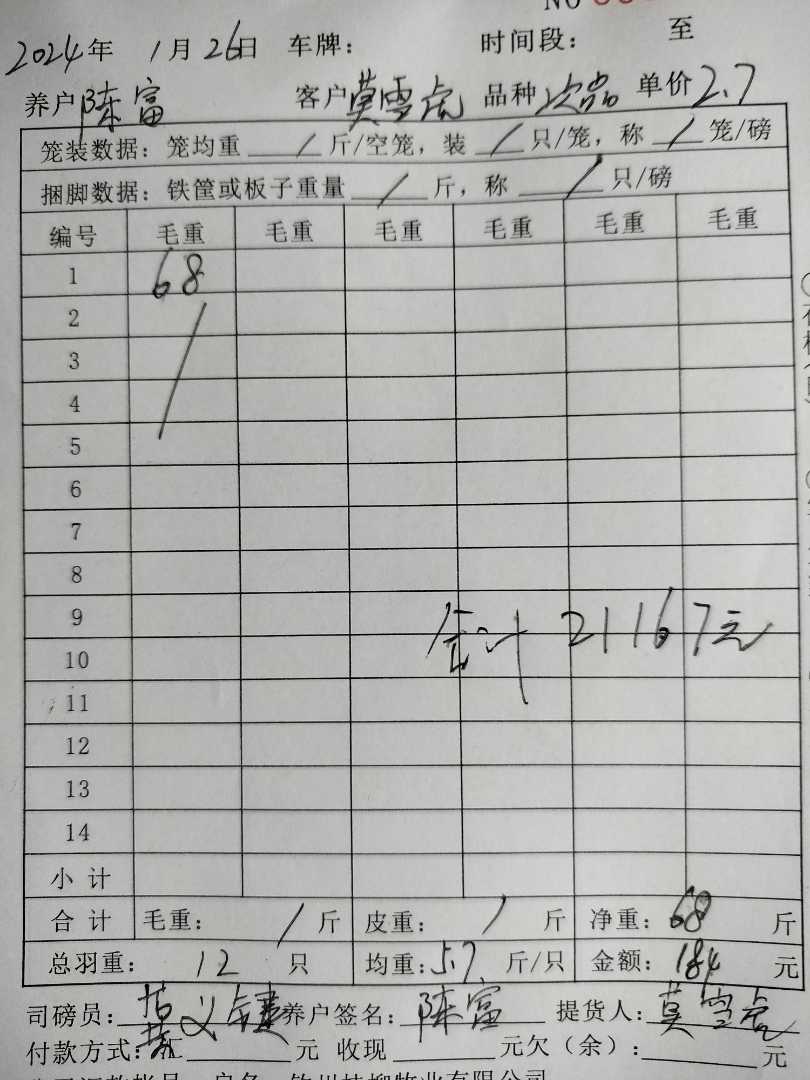 NO
2024年 1月26日 车牌： 时间段： 至
养户 陈富 客户 莫雪虎 品种 次品 单价 2.7
笼装数据：笼均重 / 斤/空笼，装 / 只/笼，称 / 笼/磅
捆脚数据：铁筐或板子重量 / 斤，称 / 只/磅
编号 毛重 毛重 毛重 毛重 毛重 毛重
1 68
2
3
4
5
6
7
8
9 合计 21167元
10
11
12
13
14
小计
合计 毛重： / 斤 皮重： / 斤 净重：68 斤
总羽重： 12 只 均重：5.7 斤/只 金额：184 元
司磅员： 养户签名：陈富 提货人：莫雪虎
付款方式： 元 收现 元欠（余）： 元